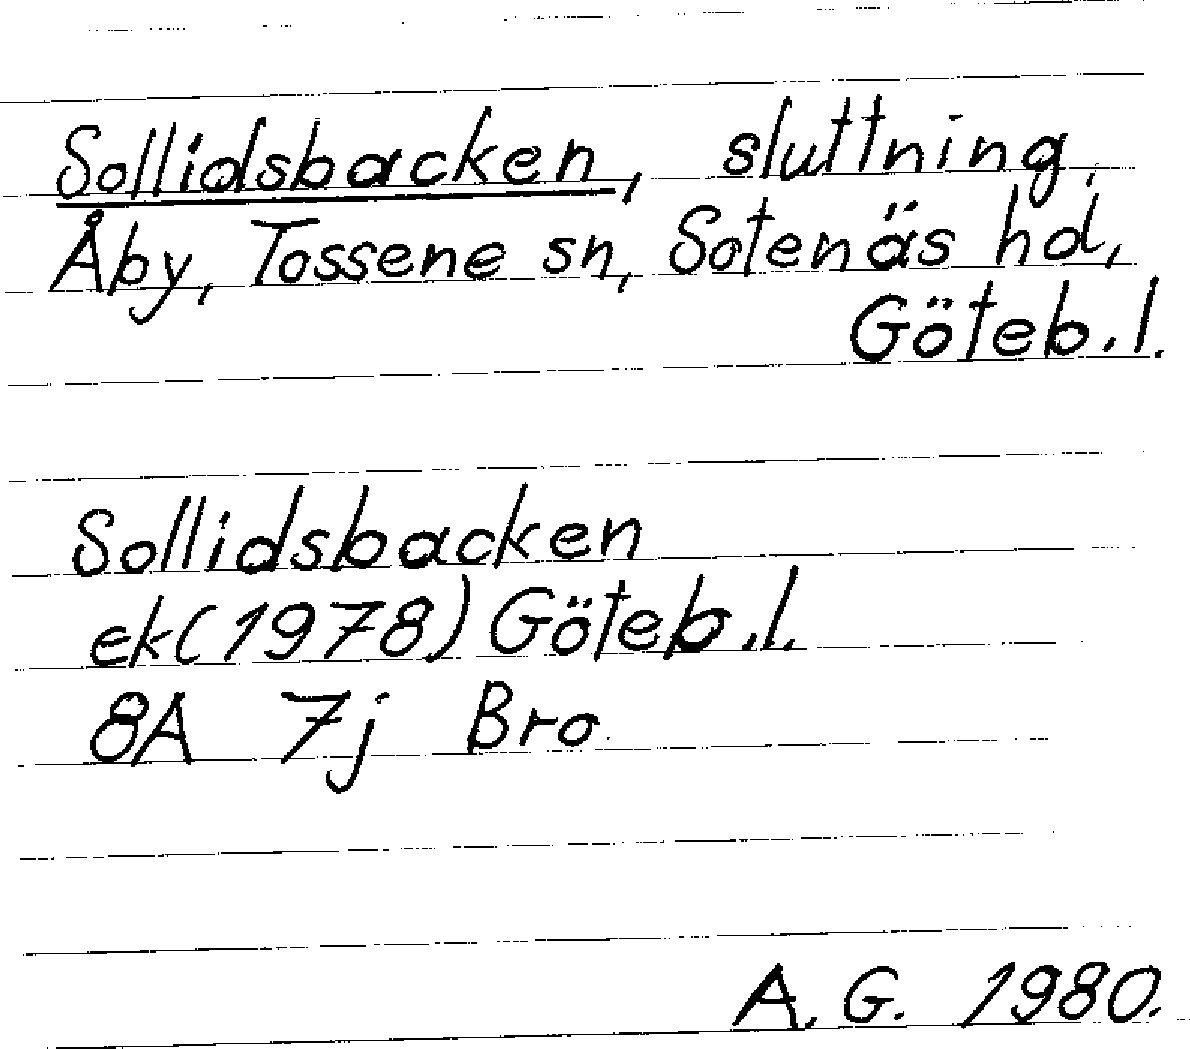 Sollidsbacken, sluttning,
Åby, Tossene sn, Sotenäs hd,
Göteb.l.
Sollidsbacken
ek(1978) Göteb.l.
8A 7j Bro
A.G. 1980.